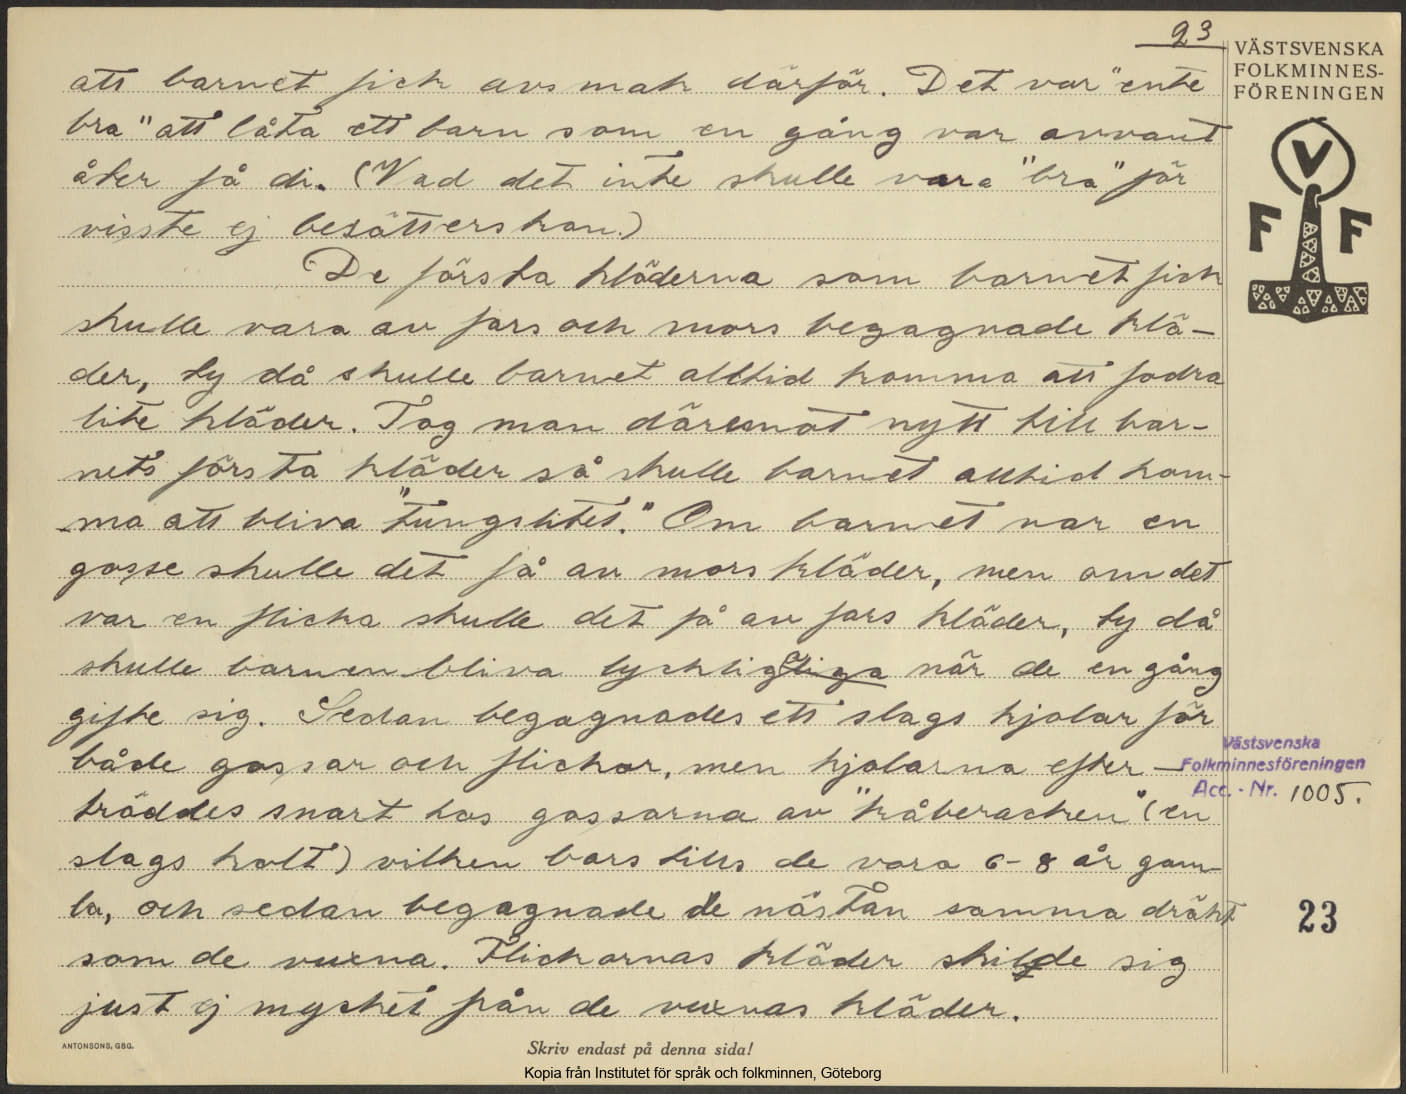 23
VÄSTSVENSKA
FOLKMINNES-
FÖRENINGEN
att barnet fick avsmak därför. Det var "ente
bra" att låta ett barn som en gång var avvant
åter få di. (Vad det inte skulle vara "bra" för
visste ej besätterskan.)
De första kläderna som barnet fick
skulle vara av fars och mors begagnade klä-
der, ty då skulle barnet alltid komma att fodra
lite kläder. Tog man däremot nytt till bar-
nets första kläder så skulle barnet alltid kom-
ma att bliva "tungslitet." Om barnet var en
gosse skulle det få av mors kläder, men om det
var en flicka skulle det få av fars kläder, ty då
skulle barnen bliva lyckliga när de en gång
gifte sig. Sedan begagnades ett slags kjolar för
både gossar och flickor, men kjolarna efter-
träddes snart hos gossarna av "kåberacken" (en
slags kolt) vilken bars tills de voro 6-8 år gam-
la, och sedan begagnade de nästan samma dräkt
som de vuxna. Flickornas kläder skilde sig
just ej mycket från de vuxnas kläder.
V
F F
Västsvenska
Folkminnesföreningen
Acc. - Nr. 1005.
23
ANTONSONS, GBG.
Skriv endast på denna sida!
Kopia från Institutet för språk och folkminnen, Göteborg